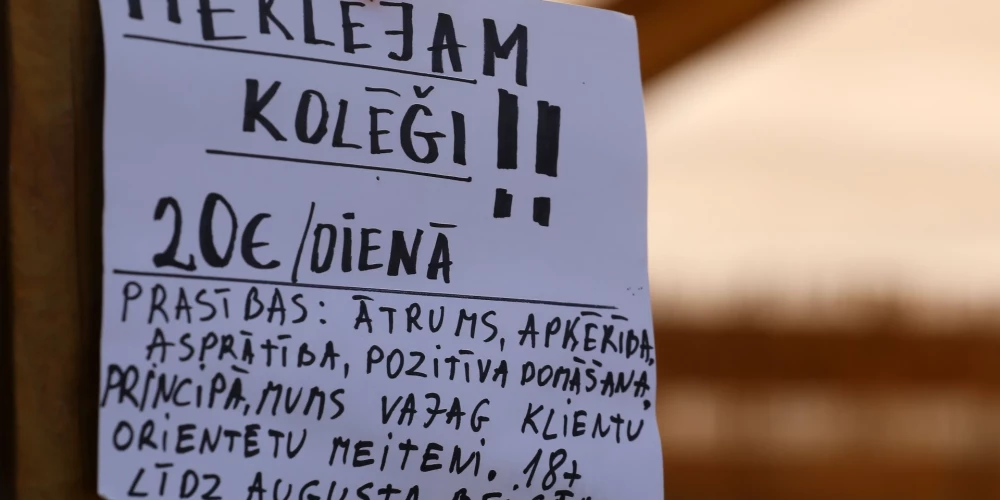 MEKLĒJAM
KOLĒĢI !!
20€/DIENĀ
PRASĪBAS: ĀTRUMS, APĶĒRĪBA,
ASPRĀTĪBA, POZITĪVA DOMĀŠANA,
PRINCIPĀ, MUMS VAJAG KLIENTU
ORIENTĒTU MEITENI. 18+
LĪDZ AUGUSTA